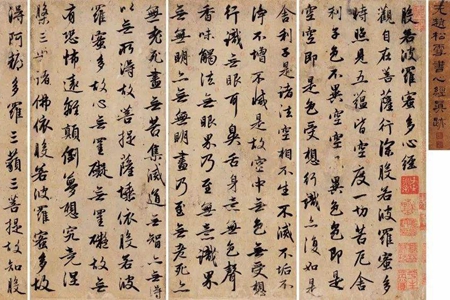 元趙松雪書心經真蹟
般若波羅蜜多心經
觀自在菩薩行深般若波羅蜜多
時照見五蘊皆空度一切苦厄舍
利子色不異空空不異色色即是
空空即是色受想行識亦復如是
舍利子是諸法空相不生不滅不垢不
淨不增不減是故空中無色無受想
行識無眼耳鼻舌身意無色聲
香味觸法無眼界乃至無意識界
無無明亦無無明盡乃至無老死亦
無老死盡無苦集滅道無智亦無得
以無所得故菩提薩埵依般若波
羅蜜多故心無罣礙無罣礙故無
有恐怖遠離顛倒夢想究竟涅
槃三世諸佛依般若波羅蜜多故
得阿耨多羅三藐三菩提故知般